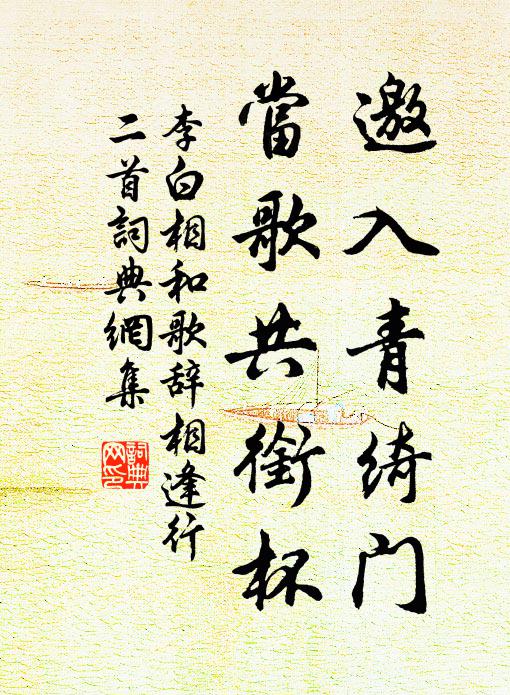 邀入青绮门
當歌共銜杯
李白相和歌辞相逢行
二首詞典網集
詞典
网印